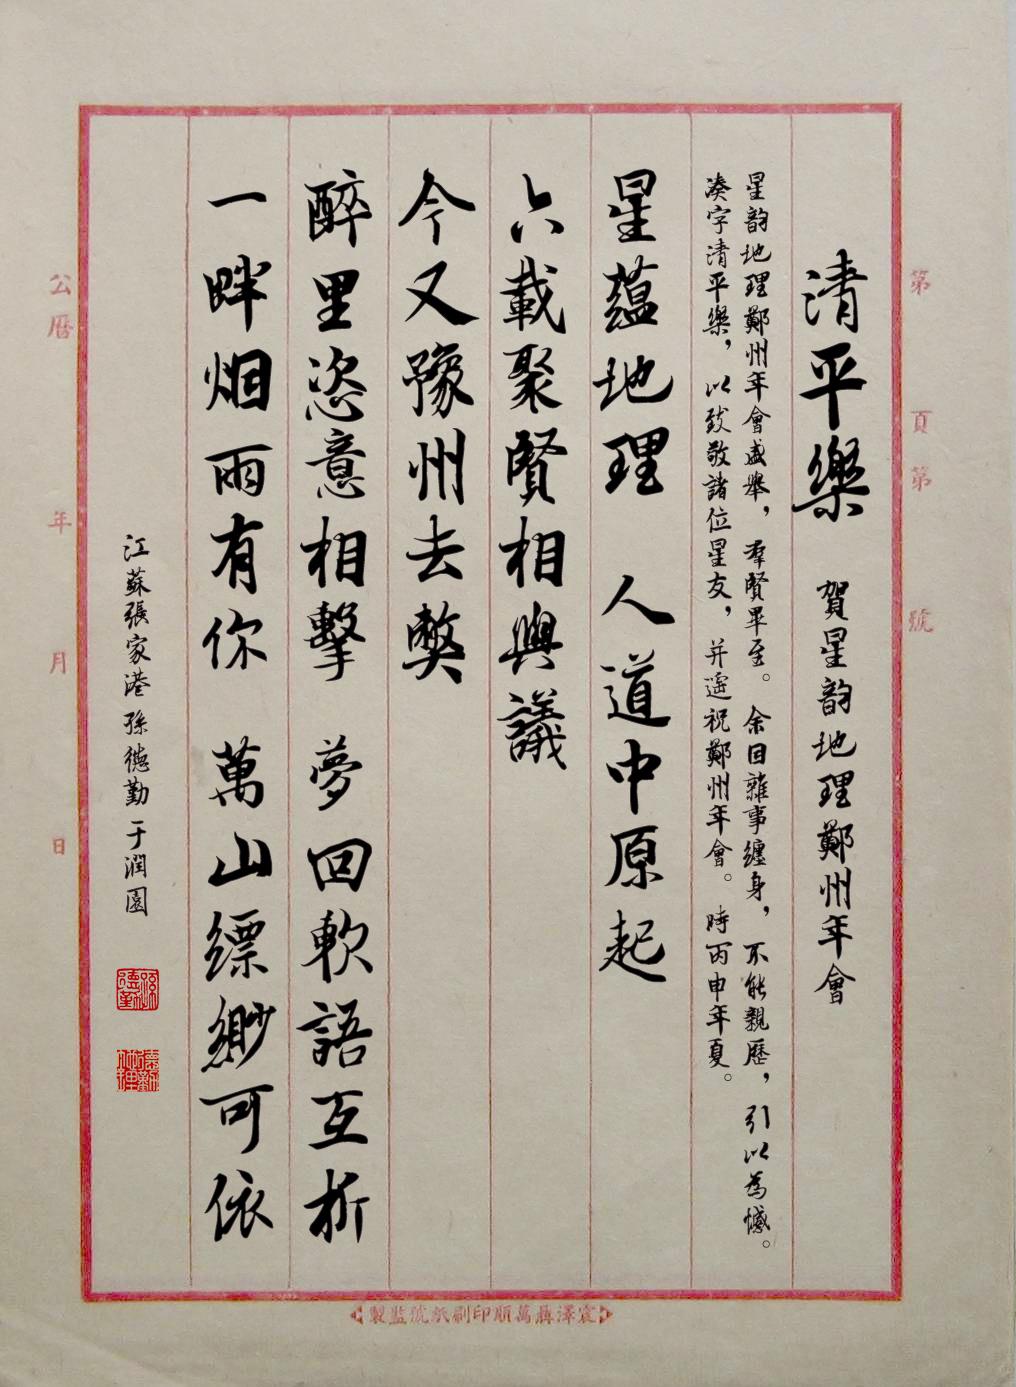 清平樂 賀星韵地理鄭州年會
星韵地理鄭州年會盛舉，羣賢畢至。余因雜事纏身，不能親歷，引以為憾。
湊字清平樂，以致敬諸位星友，并遥祝鄭州年會。時丙申年夏。
星蕴地理 人道中原起
六載聚賢相與議
今又豫州去獘
醉里恣意相擊 夢回軟語互析
一畔烟雨有你 萬山縹緲可依
江蘇張家港 孫德勤 于潤園
第 頁 第 號
公曆 年 月 日
萬順印刷紙號監製